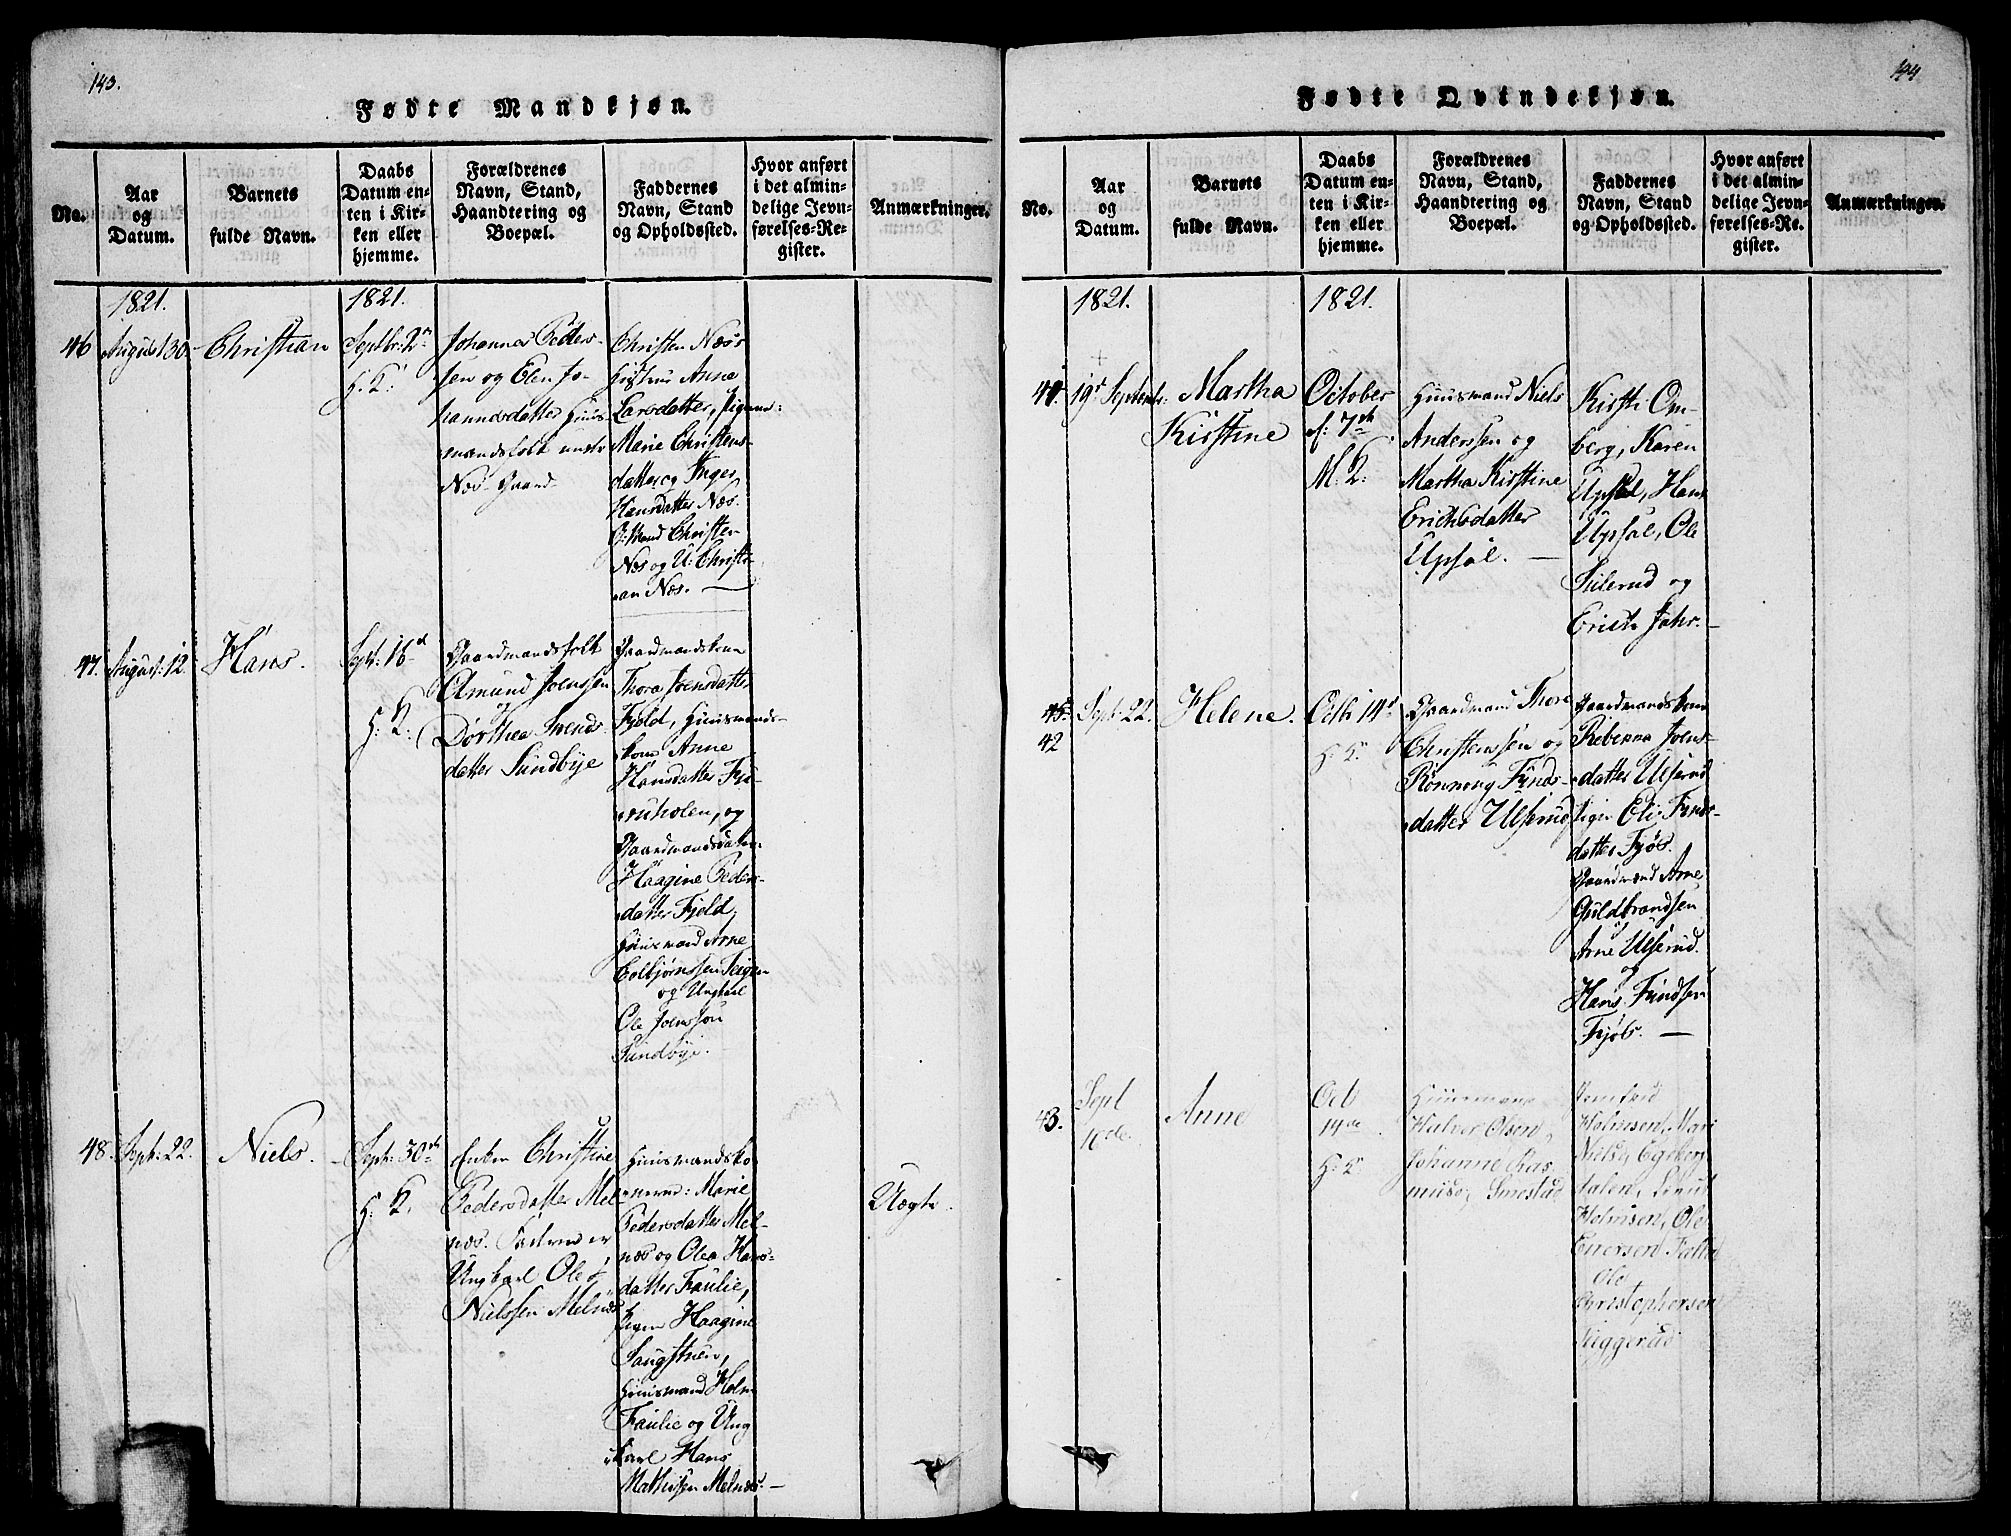 143.
Fødte Mandkjøn.
No.
Aar
og
Datum.
Barnets
fulde Navn.
Daabs
Datum en-
ten i Kir-
ken eller
hjemme.
Forældrenes
Navn, Stand,
Haandtering og
Boepæl.
Faddernes
Navn, Stand
og Opholdssted.
Hvor anført
i det almin-
delige Jevn-
førelses-Re-
gister.
Anmærkninger.
1821.
1821.
46
August 30
Christian
Septbr: 2den
H. K:
Johannes Peders-
sen og Elen Jo-
hannesdatter Huus-
mandsfolk under
Næs-Gaard-
Christen Næs's
Hustrue Anne
Larsdatter, Pigerne:
Marie Christens-
datter og Inger
Hansdatter Næs.
G: Mand Christen
Næs og U: Christi-
an Næs.
47.
August: 12.
Hans.
Sept: 16d
H: K:
Gaardmandsfolk
Amund Joenssen
og
Dorthea Svends-
datter Sundbye
Gaardmandskone
Thora Joensdatter
Fjeld, Huusmands-
kone Anne
Hansdatter Fu-
ruholen, og
Gaardmandsdatter
Haagine Peders-
datter Fjeld,
Huusmand Arne
Colbjørnssen Teigen
og Ungkarl
Ole Joenssøn
Sundbye.
48.
Sept: 22.
Niels.
Sept: 30te
H. K.
Enken Christine
Pedersdatter Mel-
næs. Faderen er
Ungkarl Ole
Nielssen Melnæs
Huusmandsko-
nerne: Marie
Pedersdatter Mel-
næs og Olea Hans-
datter Faulie,
Pigen Haagine
Saugstuen,
Huusmand Holm
Faulie og Ung-
karl Hans
Mathisen Melnæs.
Uægte.
144
Fødte Qvindekjøn.
No.
Aar
og
Datum.
Barnets
fulde Navn.
Daabs
Datum en-
ten i Kir-
ken eller
hjemme.
Forældrenes
Navn, Stand,
Haandtering og
Boepæl.
Faddernes
Navn, Stand
og Opholdssted.
Hvor anført
i det almin-
delige Jevn-
førelses-Re-
gister.
Anmærkninger.
1821.
1821.
41.
19de Septembr:
Martha
Kirstine
October
d: 7de
M. K:
Huusmand Niels
Anderssen og
Martha Kirstine
Erichsdatter
Upsal.
Kirsti Om-
berg, Karen
Upsal, Hans
Upsal, Ole
Sulerud og
Erich Jahr.
45
42
Sept: 22.
Helene.
Octb: 14d
H: K.
Gaardmand Thore
Christenssen og
Rønnoug Finds-
datter Ulserud
Gaardmandskone
Rebecca Joens-
datter Ulserud
Pigen Eli Finds-
datter Fjøs.
Gaardmænd Arne
Guldbrandsen
Arne Ulserud.
og
Hans Findsen
Fjøs.
43.
Sept
16de.
Anne
Oct
14de
H: K.
Huusmand
Halvor Olsen,
Johanne Ras-
musd, Smestad
Jomfrue
Holmsen, Mari
Nielsd, Egeberg
dalen,
Holmsen, Ole
Einersen
Ole
Christophersen
Tiggerud